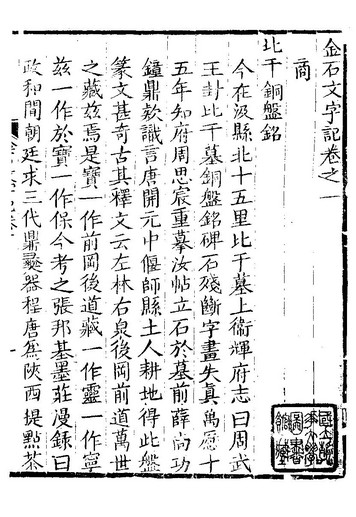 金石文字記卷之一
商
比干銅盤銘
今在汲縣北十五里比干墓上衞輝府志曰周武
王封比干墓銅盤銘碑石殘斷字畫失真萬曆十
五年知府周思宸重摹汝帖立石於墓前薛尚功
鐘鼎欵識言唐開元中偃師縣土人耕地得此盤
篆文甚奇古其釋文云左林右泉後岡前道萬世
之藏茲焉是寶一作前岡後道藏一作靈一作寧
茲一作於寶一作保今考之張邦基墨莊漫錄曰
政和間朝廷求三代鼎彝器程唐爲陝西提點茶